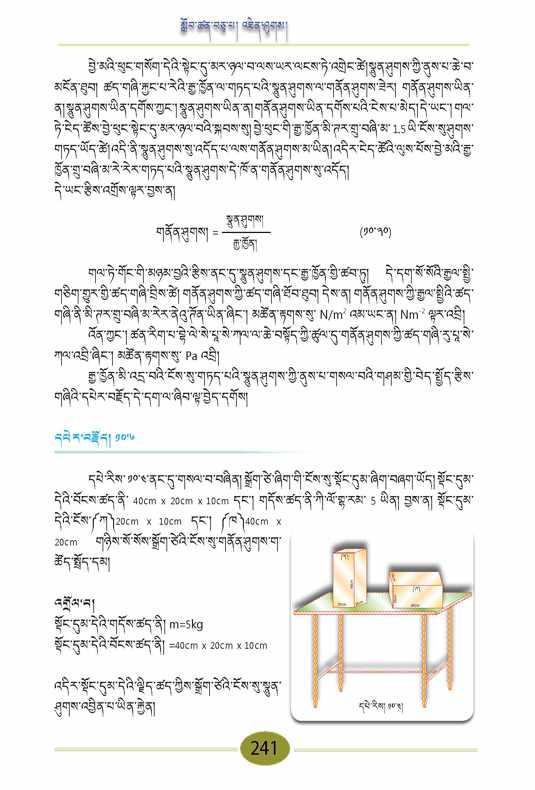 སློབ་ཚན་བཅུ་པ། འཇེན་ཤུགས།
བྱེ་མའི་ཕུང་གསོག་དེའི་སྟེང་དུ་མར་ཉལ་བ་ལས་ཡར་ལངས་ཏེ་འགྲེང་ཚེ། སྣུན་ཤུགས་ཀྱི་ནུས་པ་ཆེ་བ་
མངོན་ཐུབ། ཚད་གཞི་རྐྱང་པ་རེའི་རྒྱ་ཁྱོན་ལ་གཏད་པའི་སྣུན་ཤུགས་ལ་གནོན་ཤུགས་ཟེར། གནོན་ཤུགས་ཡིན་
ན། སྣུན་ཤུགས་ཡིན་དགོས་ཀྱང་། སྣུན་ཤུགས་ཡིན་ན། གནོན་ཤུགས་ཡིན་དགོས་པའི་ངེས་པ་མེད། དེ་ཡང་། གལ་
ཏེ་ངེད་ཚོས་བྱེ་ཕུང་སྟེང་དུ་མར་ཉལ་བའི་སྐབས་སུ། བྱེ་ཕུང་གི་རྒྱ་ཁྱོན་མི་ཊར་གྲུ་བཞི་མ་ 1.5 ཡི་ངོས་སུ་ཤུགས་
གཏད་ཡོད་ཚེ། འདི་ནི་སྣུན་ཤུགས་སུ་འདོད་པ་ལས་གནོན་ཤུགས་མ་ཡིན། འདིར་ངེད་ཚོའི་ལུས་པོས་བྱེ་མའི་རྒྱ་
ཁྱོན་གྲུ་བཞི་མ་རེ་རེར་གཏད་པའི་སྣུན་ཤུགས་དེ་ཁོ་ན་གནོན་ཤུགས་སུ་འདོད།
དེ་ཡང་རྩིས་འགྲོས་ལྟར་བྱས་ན།
གནོན་ཤུགས། = སྣུན་ཤུགས། / རྒྱ་ཁྱོན། (༡༠.༢༠)
གལ་ཏེ་གོང་གི་མཉམ་བྱའི་རྩིས་ནང་དུ་སྣུན་ཤུགས་དང་རྒྱ་ཁྱོན་གྱི་ཚབ་ཏུ། དེ་དག་སོ་སོའི་རྒྱལ་སྤྱི་
གཅིག་གྱུར་གྱི་ཚད་གཞི་བྲིས་ཚེ། གནོན་ཤུགས་ཀྱི་ཚད་གཞི་ཐོབ་ཐུབ། དེས་ན། གནོན་ཤུགས་ཀྱི་རྒྱལ་སྤྱིའི་ཚད་
གཞི་ནི་མི་ཊར་གྲུ་བཞི་མ་རེར་ནེའུ་ཊོན་ཡིན་ཞིང་། མཚོན་རྟགས་སུ་ N/m² འམ་ཡང་ན། Nm⁻² ལྟར་འབྲི།
འོན་ཀྱང་། ཚན་རིག་པ་བྷེ་ལེ་སེ་པཱ་སེ་ཀལ་ལ་ཆེ་བསྟོད་ཀྱི་ཚུལ་དུ་གནོན་ཤུགས་ཀྱི་ཚད་གཞི་རུ་པཱ་སེ་
ཀལ་འབྲི་ཞིང་། མཚོན་རྟགས་སུ་ Pa འབྲི།
རྒྱ་ཁྱོན་མི་འདྲ་བའི་ངོས་སུ་གཏད་པའི་སྣུན་ཤུགས་ཀྱི་ནུས་པ་གསལ་བའི་གཤམ་གྱི་བེད་སྤྱོད་རྩིས་
གཞིའི་དཔེར་བརྗོད་དེ་དག་ལ་ཞིབ་ལྟ་བྱེད་དགོས།
དཔེར་བརྗོད། ༡༠.༦
དཔེ་རིས་ ༡༠.༤ ནང་དུ་གསལ་བ་བཞིན། སྒྲོག་ཙེ་ཞིག་གི་ངོས་སུ་སྡོང་དུམ་ཞིག་བཞག་ཡོད། སྡོང་དུམ་
དེའི་བོངས་ཚད་ནི་ 40cm x 20cm x 10cm དང་། གདོས་ཚད་ནི་ཀི་ལོ་གྷྲ་རམ་ 5 ཡིན། བྱས་ན། སྡོང་དུམ་
དེའི་ངོས་༼ཀ༽20cm x 10cm དང་། ༼ཁ༽40cm x
20cm གཉིས་སོ་སོས་སྒྲོག་ཙེའི་ངོས་སུ་གནོན་ཤུགས་ག་
ཚོད་སྤྲོད་དམ།
འགྲོལ་བ།
སྡོང་དུམ་དེའི་གདོས་ཚད་ནི། m=5kg
སྡོང་དུམ་དེའི་བོངས་ཚད་ནི། =40cm x 20cm x 10cm
འདིར་སྡོང་དུམ་དེའི་ལྗིད་ཚད་ཀྱིས་སྒྲོག་ཙེའི་ངོས་སུ་སྣུན་
ཤུགས་འབྱིན་པ་ཡིན་རྐྱེན།
(ཀ)
(ཁ)
དཔེ་རིས། ༡༠.༤།
241